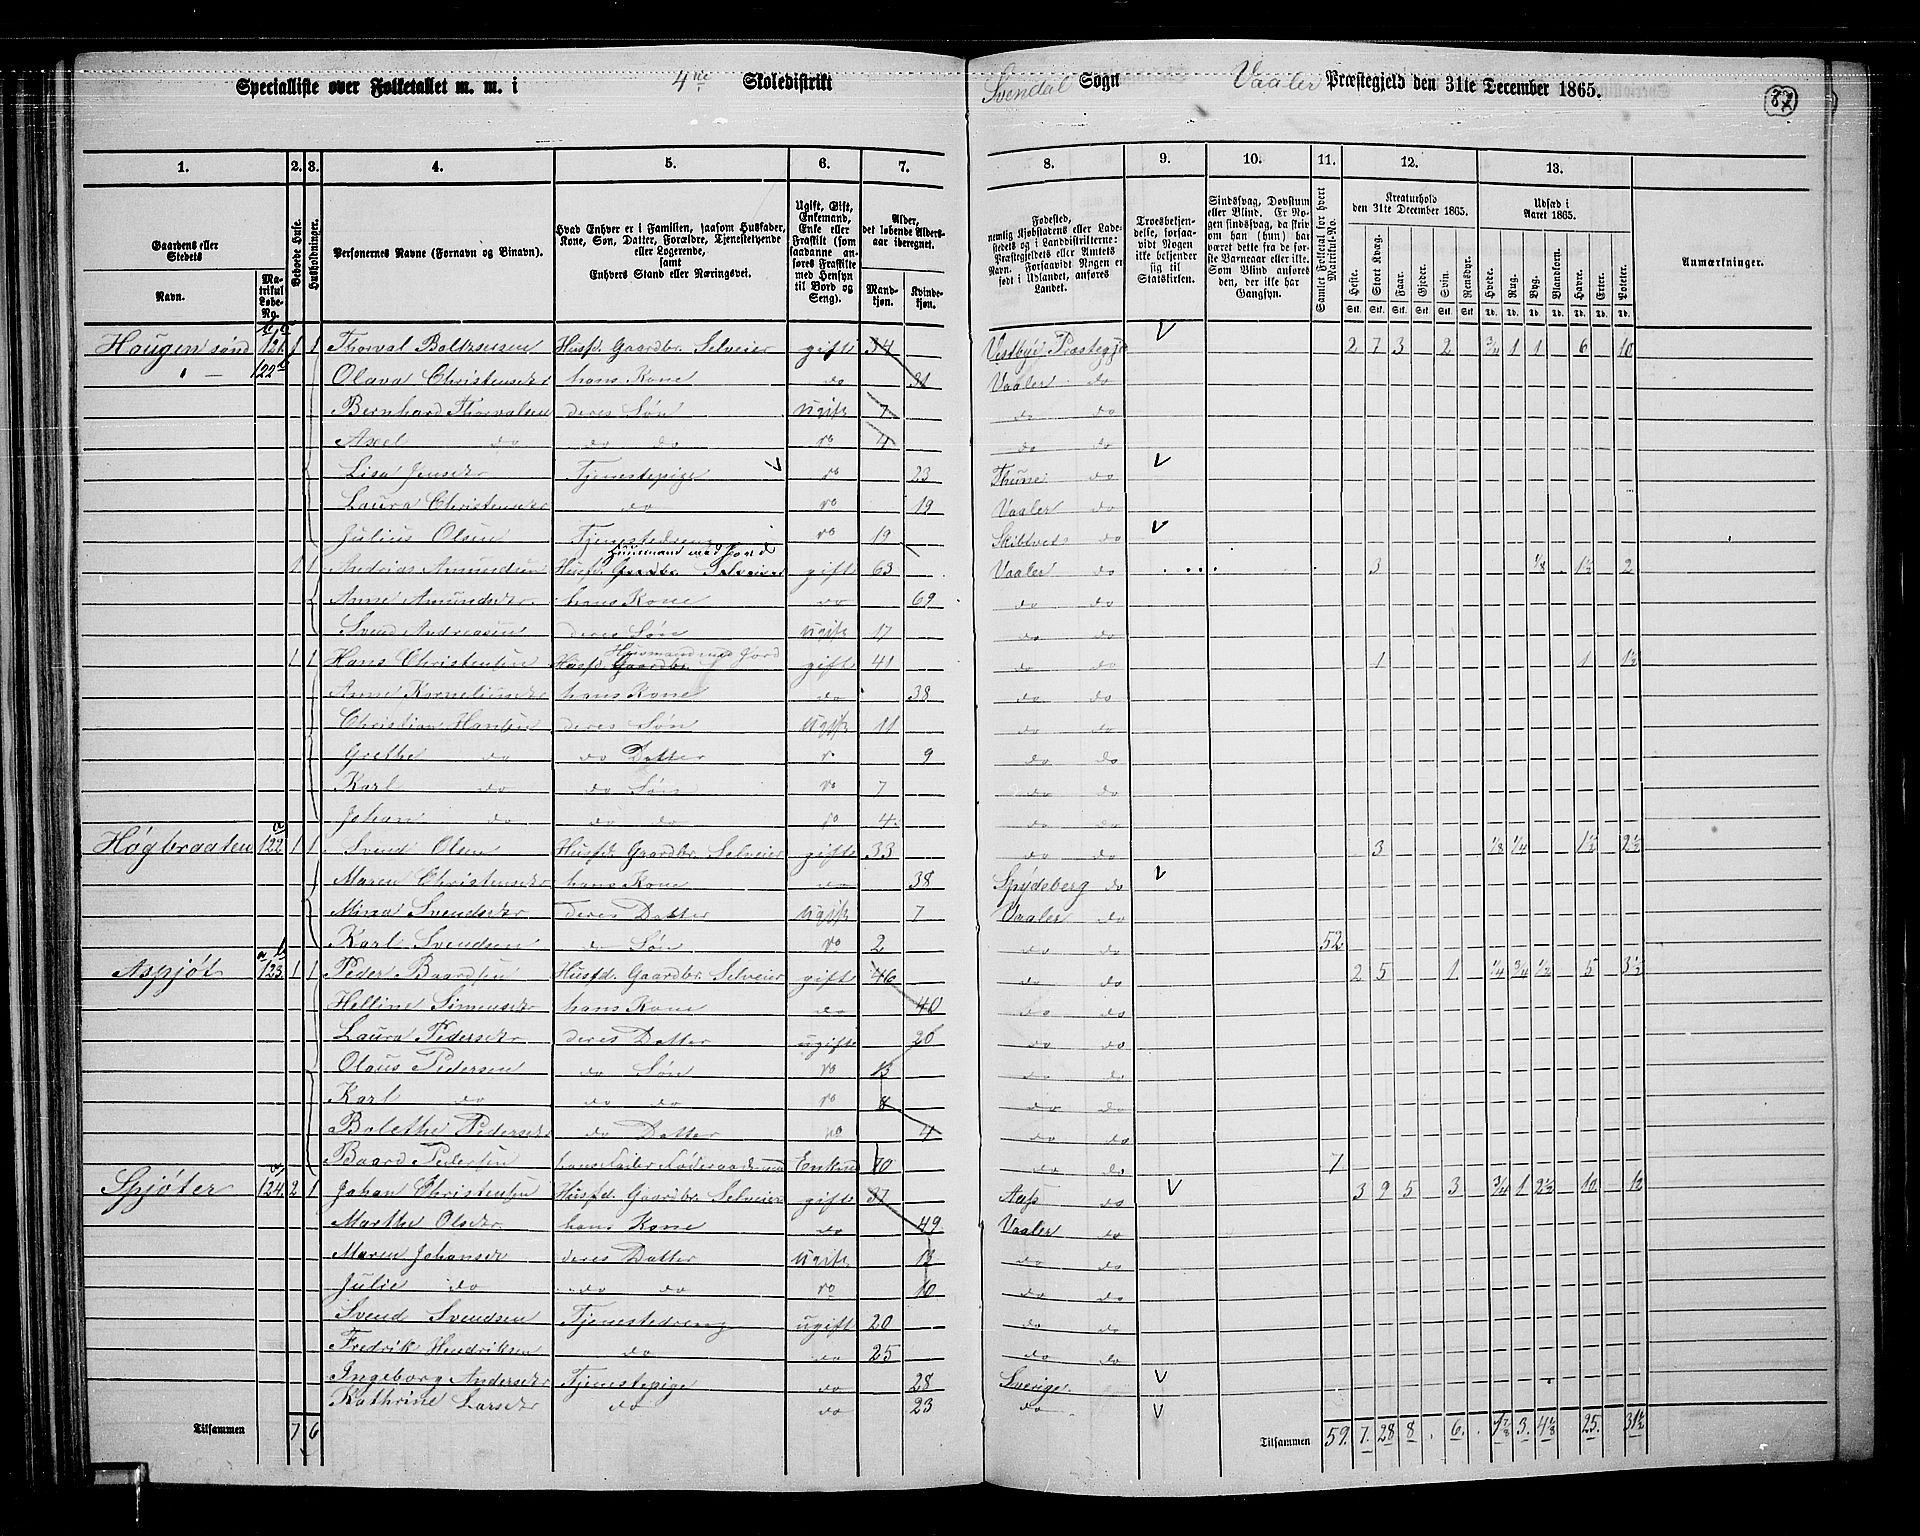 Specialliste over Folketallet m. m. i 4de Skoledistrikt Svendal Sogn Vaaler Præstegjeld den 31te December 1865.
87
1. 2. 3. 4. 5. 6. 7. 8. 9. 10. 11. 12. 13.
Gaardens eller Stedets Navn. Matrikul Løbe-No. Beboede Huse. Husholdninger. Personernes Navne (Fornavn og Binavn). Hvad Enhver er i Familien, saasom Husfader, Kone, Søn, Datter, Forældre, Tjenestetyende eller Logerende, samt Enhvers Stand eller Næringsvei. Ugift, Gift, Enkemand, Enke eller Fraskilt (som saadanne anføres Fraskilte med Hensyn til Bord og Seng). Alder, det løbende Aldersaar iberegnet. Mandkjøn. Kvindekjøn.
Fødested, nemlig Kjøbstadens eller Ladestedets og i Landdistrikterne: Præstegjeldets eller Amtets Navn. Forsaavidt Nogen er født i Udlandet, anføres Landet. Troesbekjendelse, forsaavidt Nogen ikke bekjender sig til Statskirken. Sindssvag, Døvstum eller Blind. Er Nogen sindssvag, da skrives om han (hun) har været dette fra de første Barneaar eller ikke. Som Blind anføres den, der ikke har Gangsyn. Samlet Folketal for hvert Matrikul-No. Kreaturhold den 31te December 1865. Heste. Stort Kvæg. Faar. Gjeder. Svin. Rensdyr. Udsæd i Aaret 1865. Hvede. Rug. Byg. Blandkorn. Havre. Erter. Poteter. Anmærkninger.
Haugen sønd 121 1 1 Thorval Boltzersen Husfd. Gaardbr. Selveier gift 34 Vestbye Præstegje 2 7 3 2 3/4 1 1 6 10
" — 122 Olava Christensdr hans Kone do 31 Vaaler do
Bernhard Thorvalsen deres Søn Ugift 7 do do
Axel do do do do 4 do do
Lisa Jensdr Tjenestepige do 23 Thune do
Laura Christensdr do do 19 Vaaler do
Julius Olsen Tjenestedreng do 19 Skibtvet do
Huusmand med Jord
1 1 Andrias Amundsen Husfd. Gaardbr. Selveier gift 63 Vaaler do 3 1/8 1½ 2
Anne Amundsdr hans Kone do 69 do do
Svend Andreasen deres Søn Ugift 17 do do
Huusmand med Jord
1 1 Hans Christensen Husfd. Gaardbr. gift 41 do do 1 1 1½
Anne Korneliusdr hans Kone do 38 do do
Christian Hansen deres Søn Ugift 11 do do
Grethe do do Datter do 9 do do
Karl do do Søn do 7 do do
Johan do do do do 4 do do
Høgbraaten 122 a 1 1 Svend Olsen Husfd. Gaardbr. Selveier gift 33 do do 3 1/8 1/4 1½ 2½
Maren Christensdr hans Kone do 38 Spydeberg do
Mina Svendsdr deres Datter Ugift 7 Vaaler do
Karl Svendsen do Søn do 2 do do 52
Aspjøt 123 a b 1 1 Peder Baardsen Husfd. Gaardbr. Selveier gift 46 do do 2 5 1 1/4 3/4 1½ 5 3½
Helline Simensdr hans Kone do 40 do do
Laura Pedersdr deres Datter ugift 20 do do
Olaus Pedersen do Søn do 13 do do
Karl do do do do 8 do do
Bolethe Pedersdr do Datter do 4 do do
Baard Pedersen hans Fader Enkmd 70 do do 7
Spjøter 124 a 2 1 Johan Christensen Husfd. Gaardbr. Selveier gift 37 Aas do 3 9 5 3 3/4 1 2½ 10 12
Marthe Olsdr hans Kone do 49 Vaaler do
Maren Johansdr deres Datter Ugift 13 do do
Julie do do do do 10 do do
Svend Svendsen Tjenestedreng ugift 20 do do
Fredrik Hendriksen do do 25 do do
Ingeborg Andersdr Tjenestepige do 28 Sverige
Kathrine Larsdr do do 23 do
Tilsammen 7 6 Tilsammen 59 7 28 8 6 1 7/8 3 4 1/8 25 31½